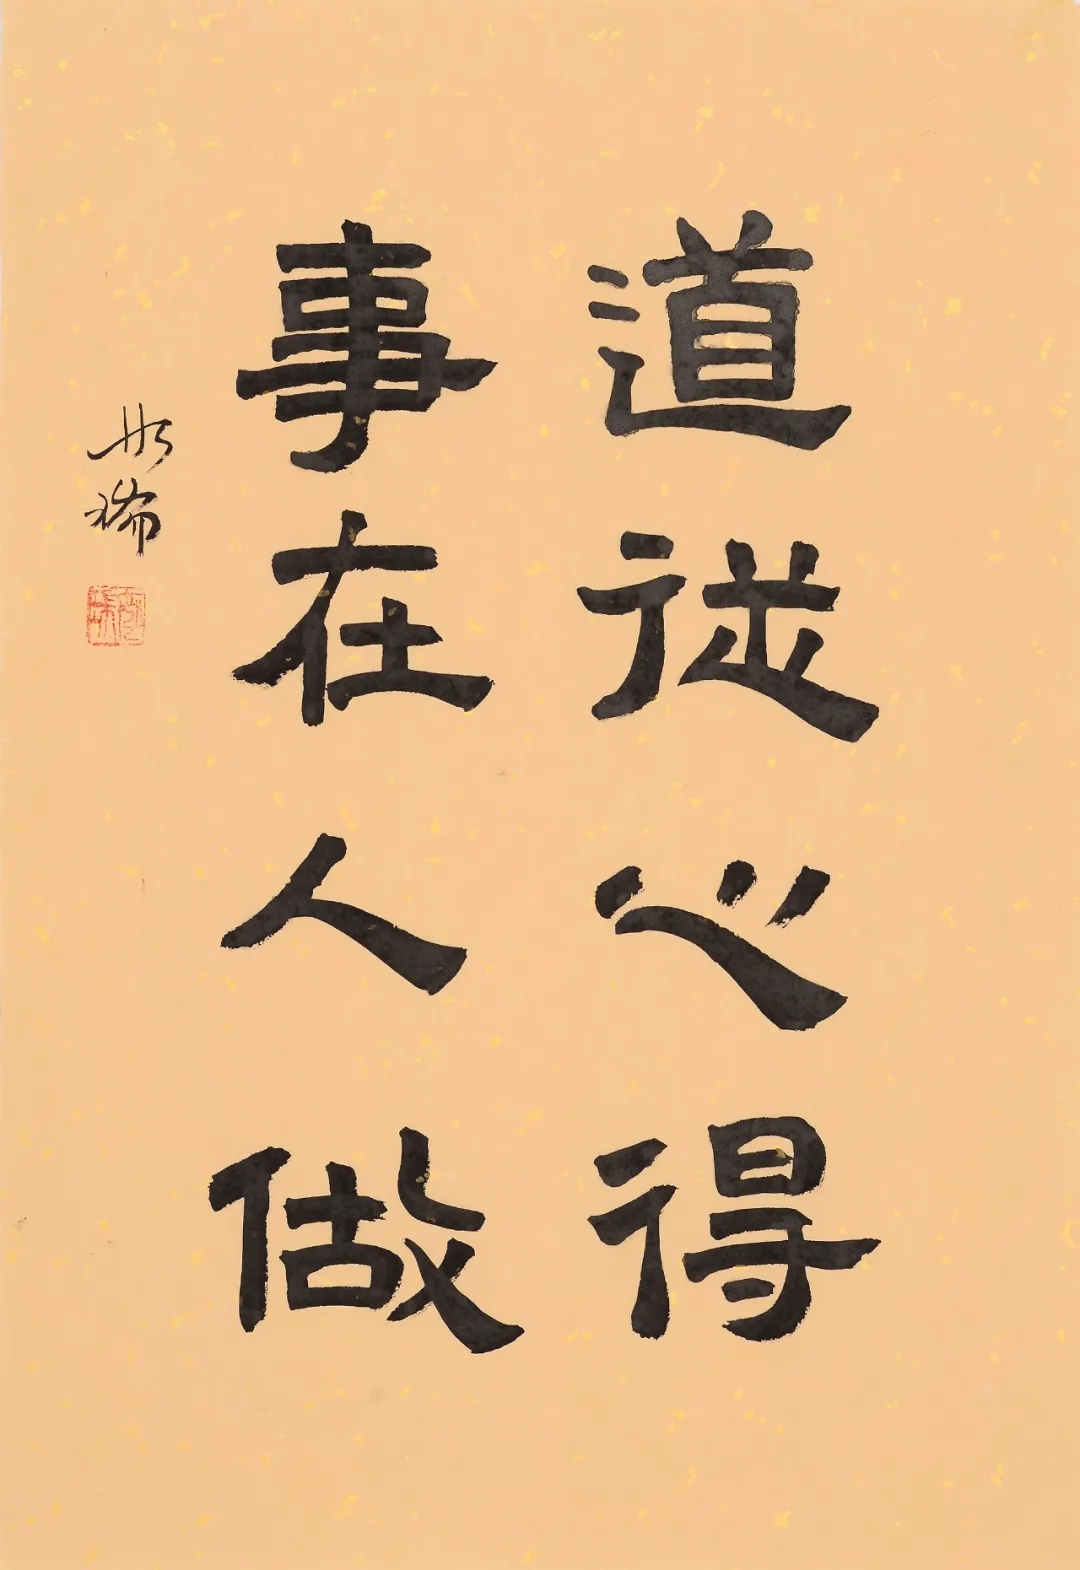 道从心得
事在人做